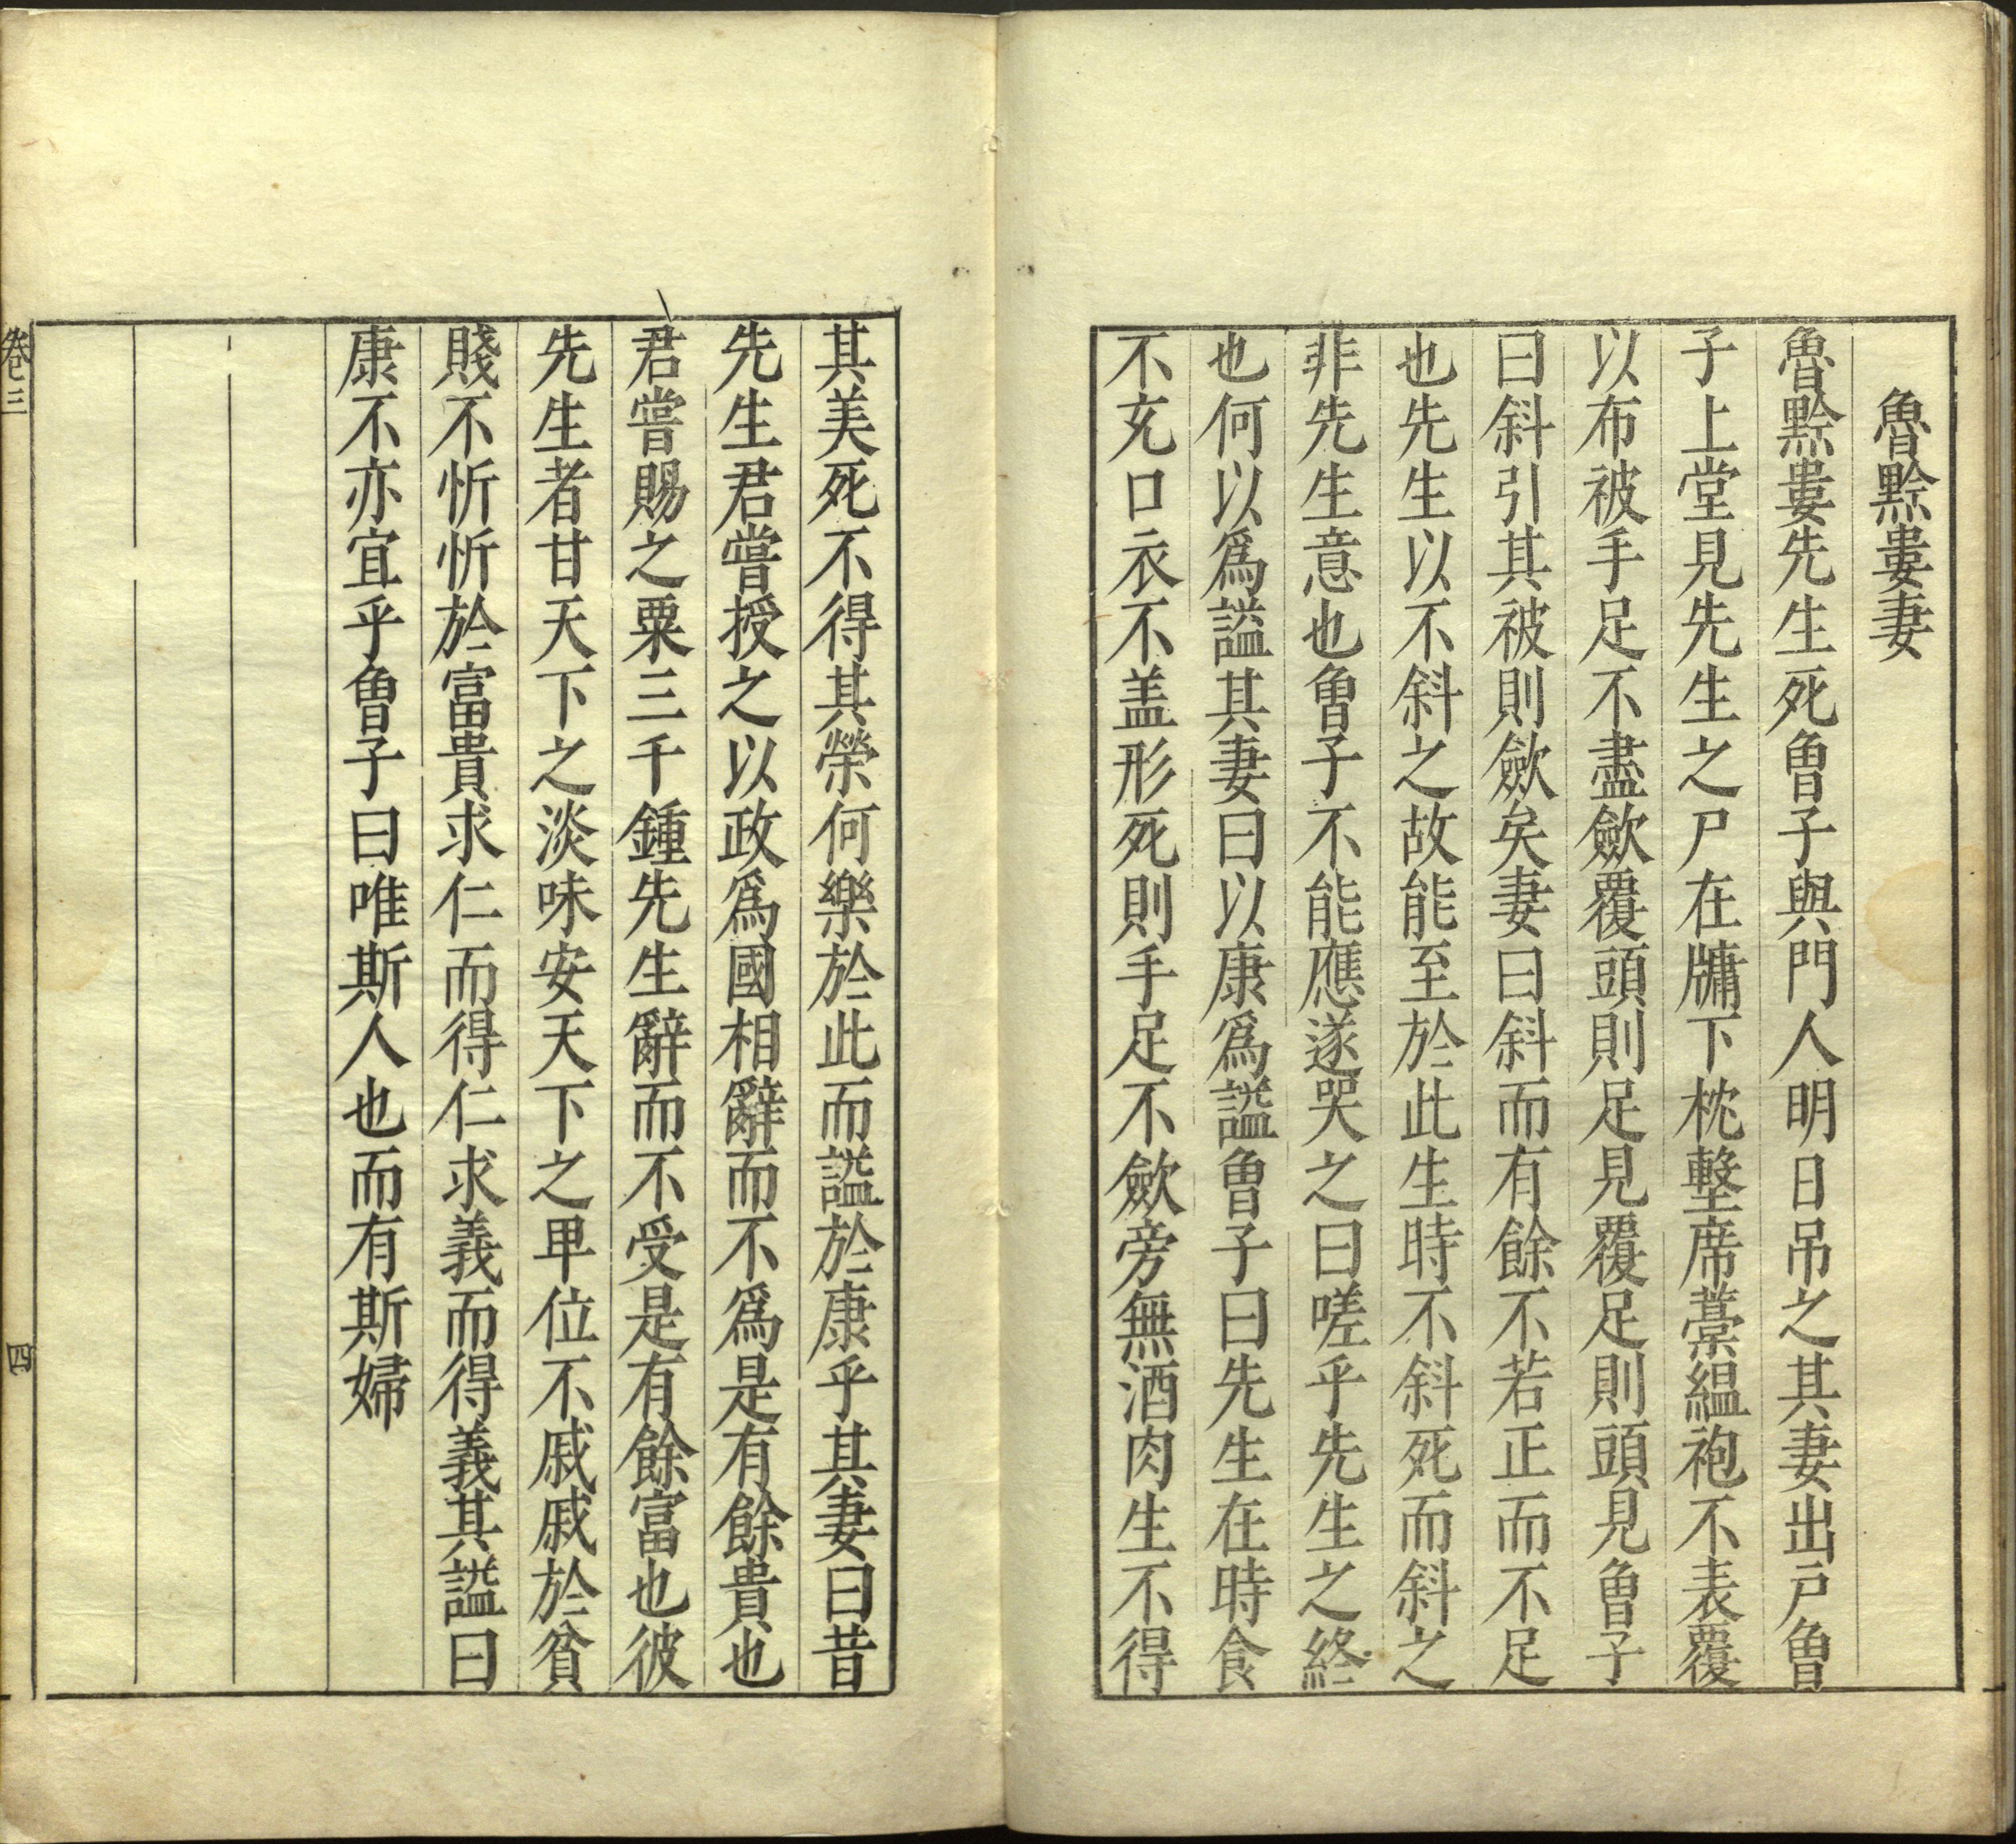 魯黔婁妻
魯黔婁先生死魯子與門人明日吊之其妻出戸魯
子上堂見先生之尸在牖下枕墼席藁緼袍不表覆
以布被手足不盡歛覆頭則足見覆足則頭見魯子
曰斜引其被則歛矣妻曰斜而有餘不若正而不足
也先生以不斜之故能至於此生時不斜死而斜之
非先生意也魯子不能應遂哭之曰嗟乎先生之終
也何以爲謚其妻曰以康爲謚魯子曰先生在時食
不充口衣不盖形死則手足不歛旁無酒肉生不得
其美死不得其榮何樂於此而謚於康乎其妻曰昔
先生君嘗授之以政爲國相辭而不爲是有餘貴也
君嘗賜之粟三千鍾先生辭而不受是有餘富也彼
先生者甘天下之淡味安天下之卑位不戚戚於貧
賤不忻忻於富貴求仁而得仁求義而得義其謚曰
康不亦宜乎魯子曰唯斯人也而有斯婦
卷三
四